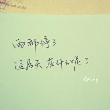 雨都停了
这片天 灰什么呢？